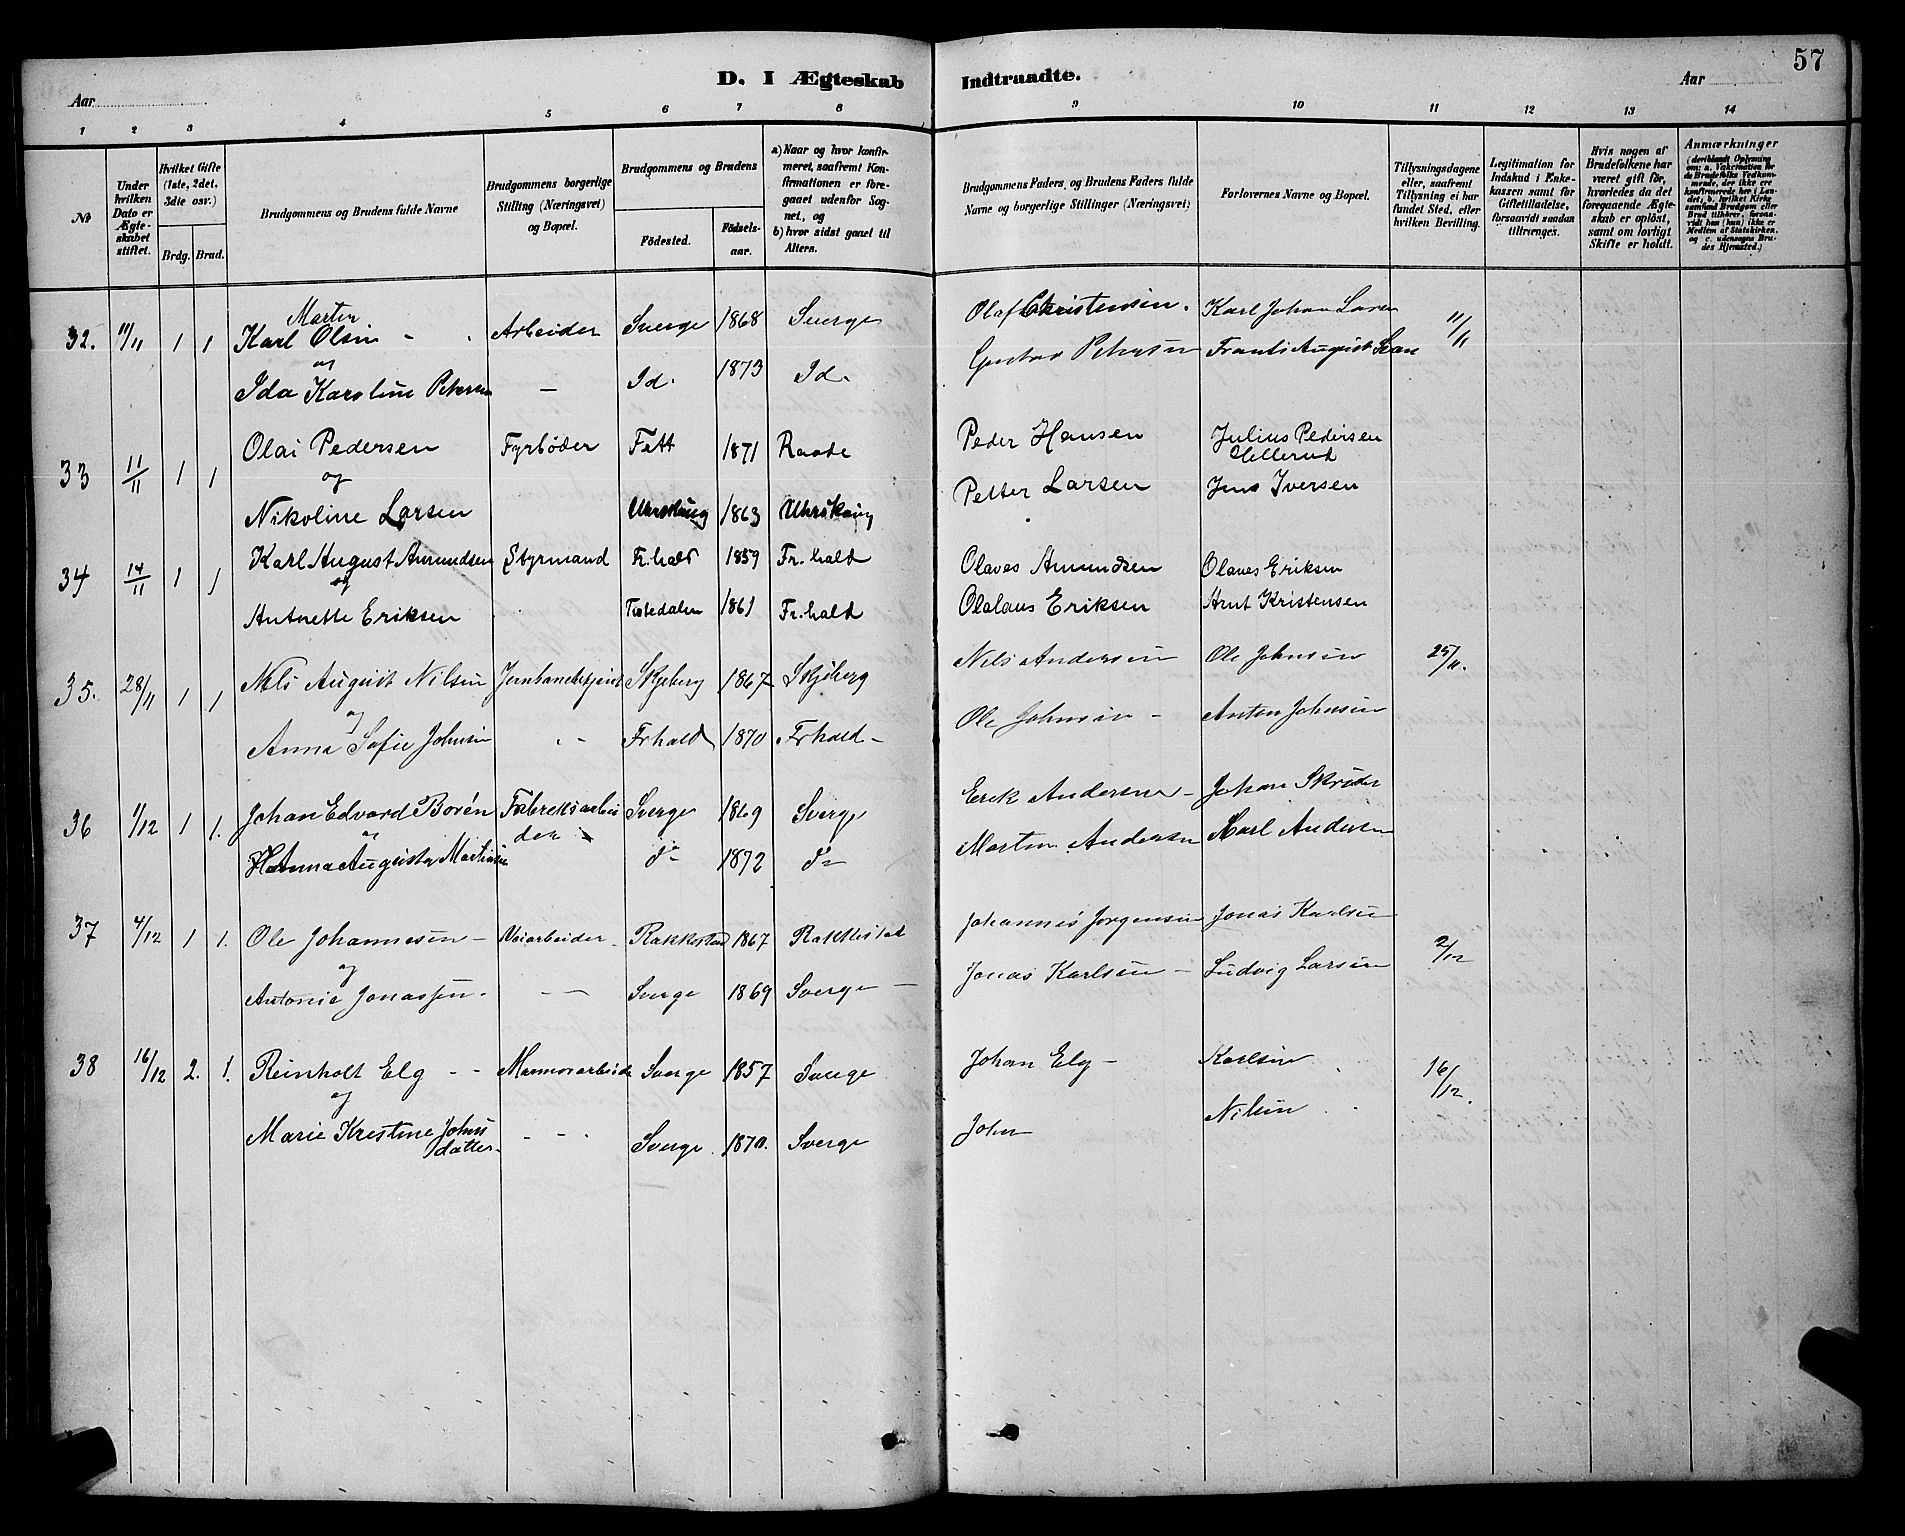 57
D. I Ægteskab Indtraadte.
Aar
Aar
1 2 3 4 5 6 7 8 9 10 11 12 13 14
No
Under hvilken Dato er Ægteskabet stiftet.
Hvilket Gifte (1ste, 2det, 3die osv.)
Brdg. Brud.
Brudgommens og Brudens fulde Navne
Brudgommens borgerlige Stilling (Næringsvei) og Bopæl.
Brudgommens og Brudens
Fødested.
Fødselsaar.
a) Naar og hvor konfirmeret, saafremt Konfirmationen er foregaaet udenfor Sognet, og
b) hvor sidst gaaet til Alters.
Brudgommens Faders, og Brudens Faders fulde Navne og borgerlige Stillinger (Næringsvei)
Forlovernes Navne og Bopæl.
Tillysningsdagene eller, saafremt Tillysning ei har fundet Sted, efter hvilken Bevilling.
Legitimation for Indskud i Enkekassen samt for Giftetilladelse, forsaavidt saadan tiltrænges.
Hvis nogen af Brudefolkene har været gift før, hvorledes da det foregaaende Ægteskab er opløst, samt om lovligt Skifte er holdt.
Anmærkninger
(deriblandt Oplysning om: a. Vakcination for de Brudefolks Vedkommende, der ikke ere konfirmerede her i Landet, b. hvilket Kirkesamfund Brudgom eller Brud tilhører, forsaavidt han (hun) ikke er Medlem af Statskirken, og c. udensogns Brudes Hjemsted.)
Martin
32. 11/11 1 1 Karl Olsen Arbeider Sverge 1868 Sverge Olaf Christensen. Karl Johan Larsen 11/11
og
Ida Karoline Petersen — Id. 1873 Id. Gustav Petersen Frants August
33 11/11 1 1 Olai Pedersen Fyrbøder 1871 Raade Peder Hansen Julius Pedersen Hellerud
og
Nikoline Larsen 1863 Petter Larsen Jens Iversen
34 14/11 1 1 Karl August Amundsen Styrmand Fr.hald 1859 Fr.hald Olaves Amundsen Olaves Eriksen
og
Antnette Eriksen Tistedalen 1861 Fr.hald Olalaus Eriksen Arnt Kristensen
35. 28/11 1 1 Nils August Nilsen Skjeberg 1867 Skjeberg Nils Andersen Ole Johnsen 25/11.
og
Anna Sofie Johnsen Frhald 1870 Frhald Ole Johnsen Anton Johnsen
36 1/12 1 1. Johan Edvard Borén Fabreksarbeider Sverge 1869 Sverge Erik Andersen Johan Skrøder
og
Anna Augusta Martinsen do 1872 do Martin Andersen Karl Andersen
37 4/12 1 1. Ole Johannesen Veiarbeider Rakkestad 1867 Rakkestad Johannes Jørgensen Jonas Karlsen 2/12
og
Antonie Jonassen. — Sverge 1869 Sverge Jonas Karlsen Ludvig Larsen
38 16/12 2. 1. Reinholt Elg Marmorarbeide Sverge 1857 Sverge Johan Elg Karlsen 16/12.
og
Marie Krestine Johnsdatter Sverge 1870. Sverge John Nilsen